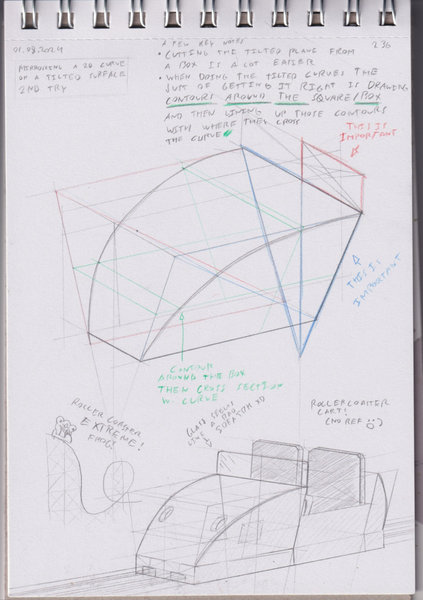 01.08.2024
236
MIRRORING A 2D CURVE
ON A TILTED SURFACE
2ND TRY
A FEW KEY NOTES
• CUTTING THE TILTED PLANE FROM
A BOX IS A LOT EASIER
• WHEN DOING THE TILTED CURVES THE
JUST OF GETTING IT RIGHT IS DRAWING
CONTOURS AROUND THE SQUARE/BOX
AND THEN LINING UP THOSE CONTOURS
WITH WHERE THEY CROSS
THE CURVE
THIS IS
IMPORTANT
THIS IS
IMPORTANT
CONTOUR
AROUND THE BOX
THEN CROSS SECTION
W. CURVE
ROLLER COASTER
EXTREME!
FROG!
GLASS
LIKE A BAD
XD
ROLLERCOASTER
CART!
(NO REF :))